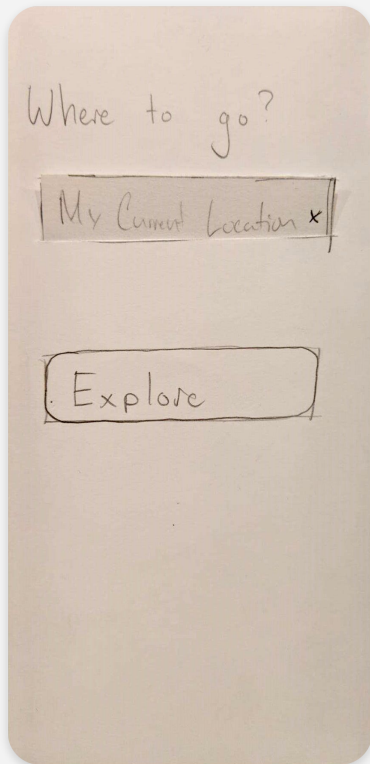 Where to go?
My Current Location x
Explore